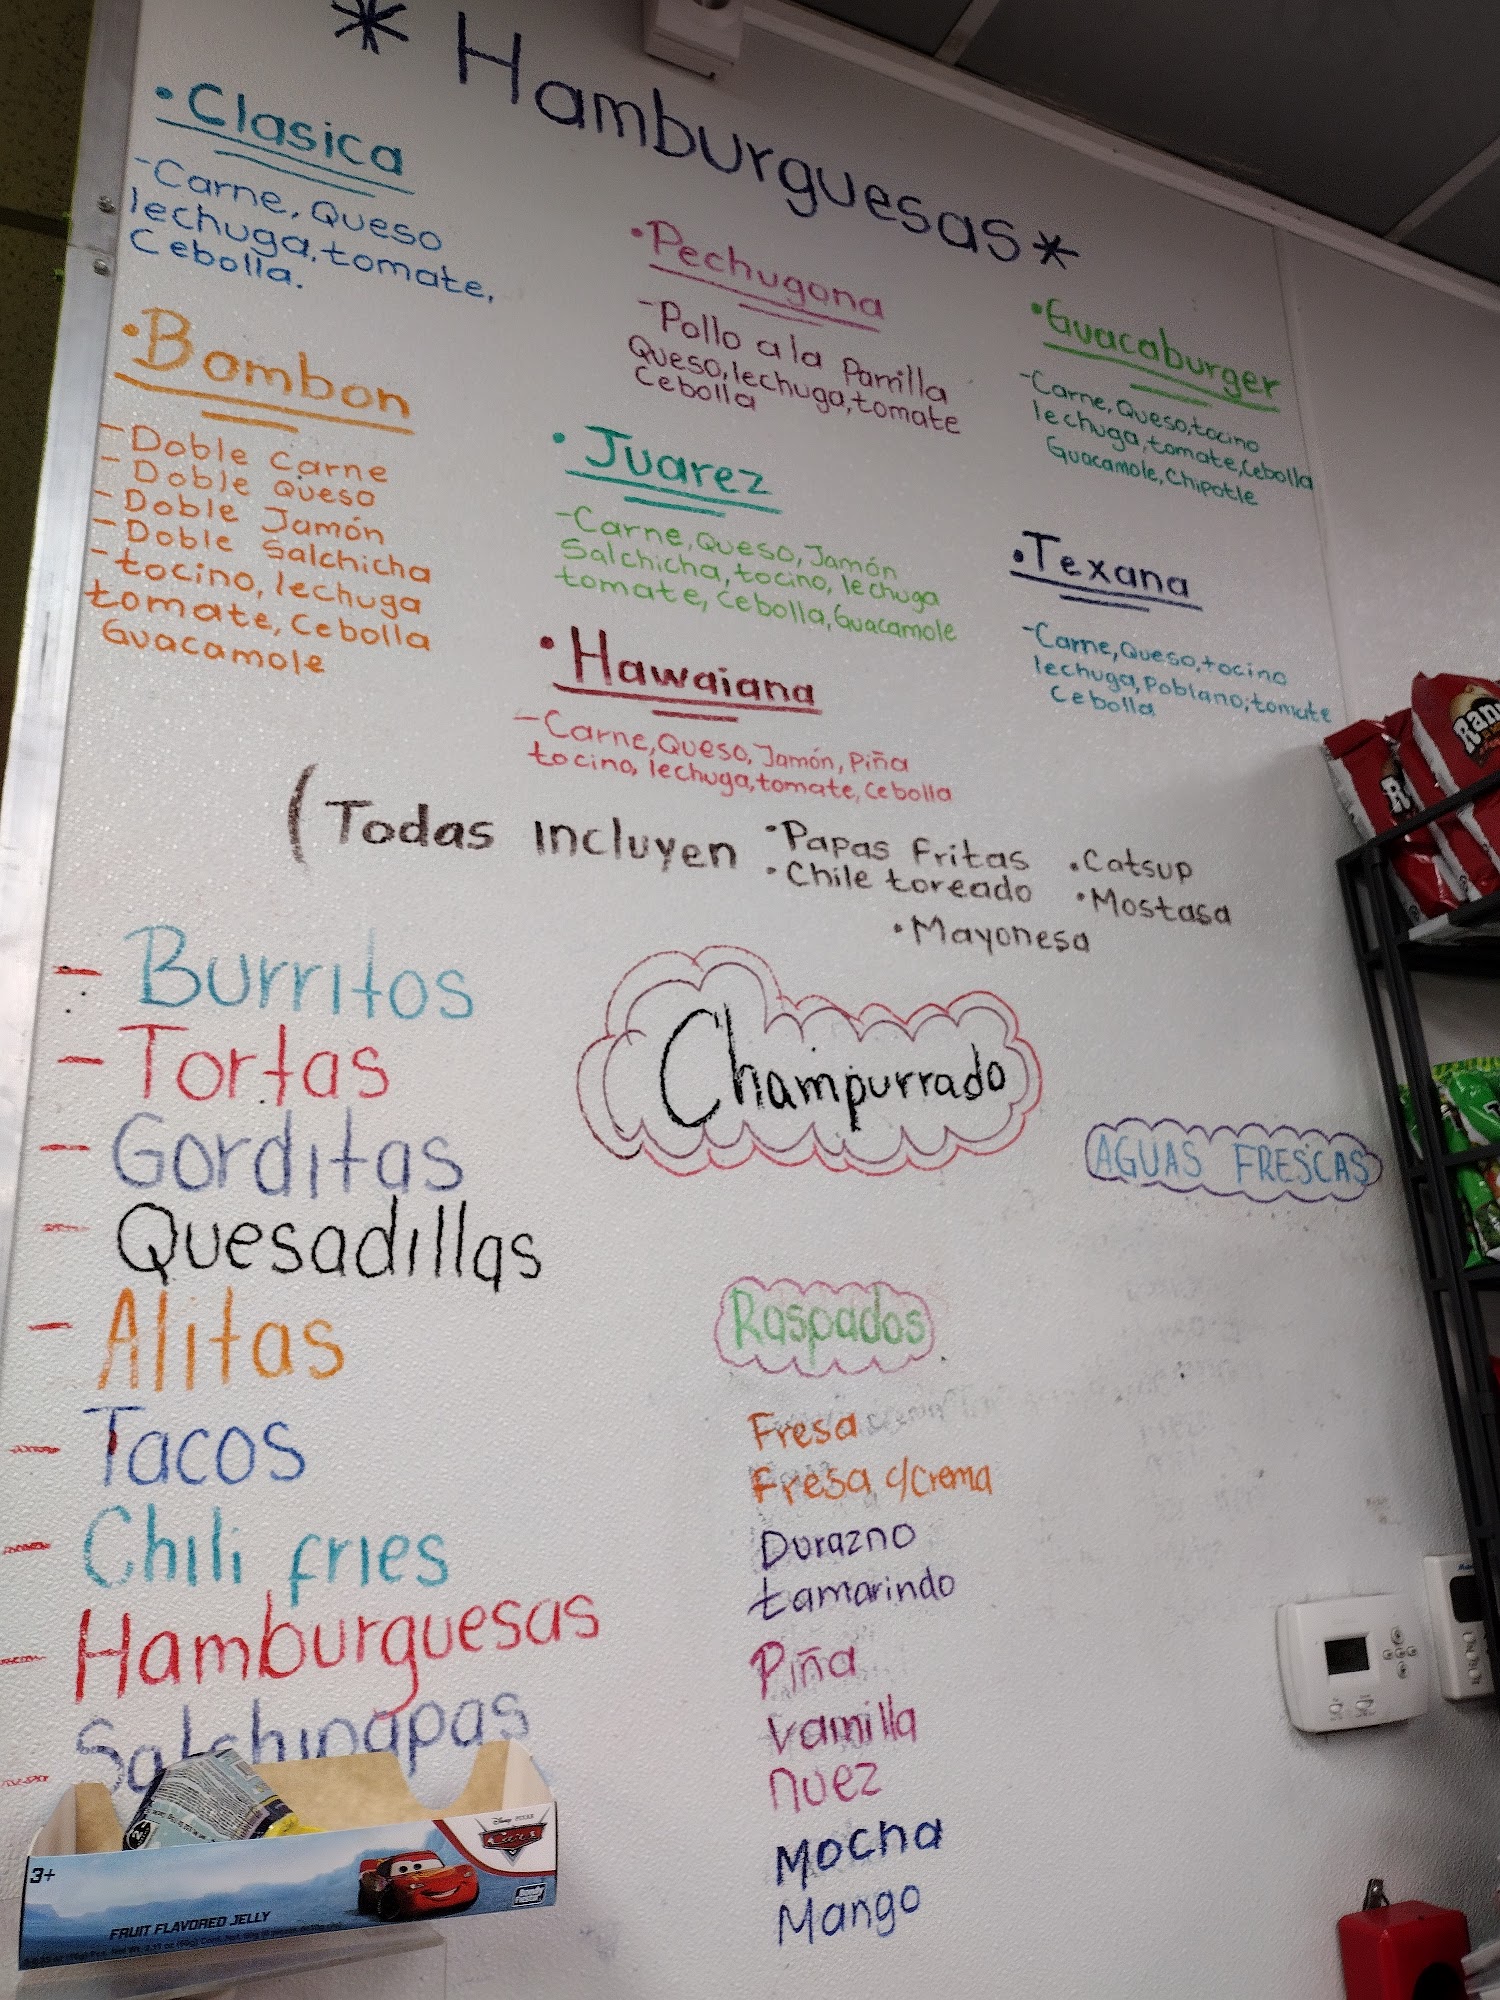 * Hamburguesas *
• Clasica
- Carne, Queso
lechuga, tomate,
Cebolla.
• Bombon
- Doble Carne
- Doble Queso
- Doble Jamón
- Doble Salchicha
- tocino, lechuga
tomate, Cebolla
Guacamole
• Pechugona
- Pollo a la Parrilla
Queso, lechuga, tomate
Cebolla
• Juarez
- Carne, Queso, Jamón
Salchicha, tocino, lechuga
tomate, Cebolla, Guacamole
• Hawaiana
- Carne, Queso, Jamón, Piña
tocino, lechuga, tomate, Cebolla
• Guacaburger
- Carne, Queso, tocino
lechuga, tomate, Cebolla
Guacamole, Chipotle
• Texana
- Carne, Queso, tocino
lechuga, Poblano, tomate
Cebolla
(Todas incluyen
• Papas Fritas
• Chile toreado
• Catsup
• Mostasa
• Mayonesa
- Burritos
- Tortas
- Gorditas
- Quesadillas
- Alitas
- Tacos
- Chili fries
- Hamburguesas
- Salchipapas
Champurrado
AGUAS FRESCAS
Raspados
Fresa
Fresa c/Crema
Durazno
tamarindo
Piña
Vainilla
nuez
Mocha
Mango
3+
FRUIT FLAVORED JELLY
Disney PIXAR
Cars